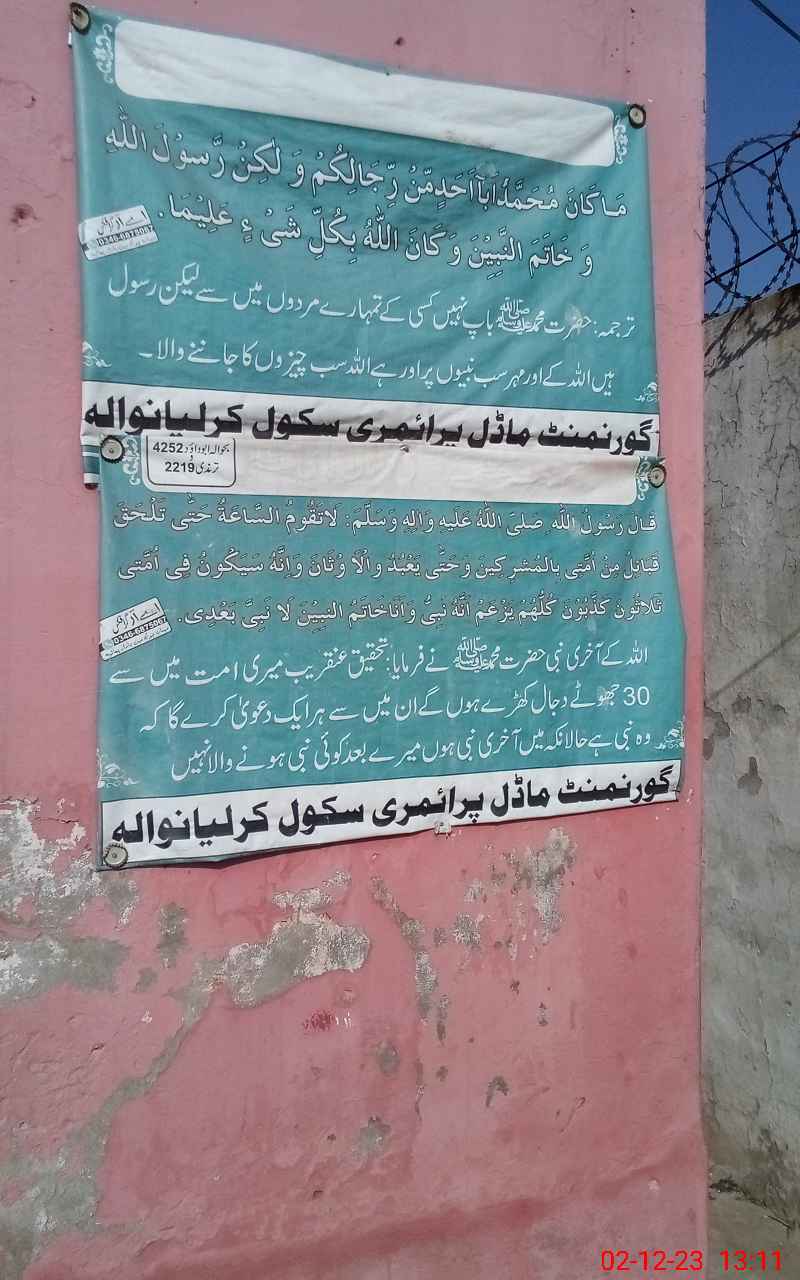 مَا كَانَ مُحَمَّدٌ اَبَآ اَحَدٍ مِّنْ رِّجَالِكُمْ وَ لٰكِنْ رَّسُوْلَ اللّٰهِ
وَ خَاتَمَ النَّبِيّٖنَ وَ كَانَ اللّٰهُ بِكُلِّ شَيْءٍ عَلِيْمًا.
ترجمہ: حضرت محمد ﷺ باپ نہیں کسی کے تمہارے مردوں میں سے لیکن رسول
ہیں اللہ کے اور مہر سب نبیوں پر اور ہے اللہ سب چیزوں کا جاننے والا۔
0346-6875067
گورنمنٹ ماڈل پرائمری سکول کرلیانوالہ
بحوالہ ابوداؤد 4252
و
ترمذی 2219
قَالَ رَسُوْلُ اللّٰهِ صَلَّى اللّٰهُ عَلَيْهِ وَاٰلِهٖ وَسَلَّمَ: لَاتَقُوْمُ السَّاعَةُ حَتّٰى تَلْحَقَ
قَبَائِلُ مِنْ اُمَّتِى بِالْمُشْرِكِيْنَ وَحَتّٰى يَعْبُدُ وا الْاَ وْثَانَ وَاِنَّهُ سَيَكُوْنُ فِى اُمَّتِى
ثَلَاثُوْنَ كَذَّبُوْنَ كُلُّهُمْ يَزْعَمُ اَنَّهُ نَبِىٌّ وَاَنَا خَاتَمُ النَّبِيِّنَ لَا نَبِىَّ بَعْدِى.
0346-6875067
اللہ کے آخری نبی حضرت محمد ﷺ نے فرمایا: تحقیق عنقریب میری امت میں سے
30 جھوٹے دجال کھڑے ہوں گے ان میں سے ہر ایک دعویٰ کرے گا کہ
وہ نبی ہے حالانکہ میں آخری نبی ہوں میرے بعد کوئی نبی ہونے والا نہیں
گورنمنٹ ماڈل پرائمری سکول کرلیانوالہ
02-12-23 13:11